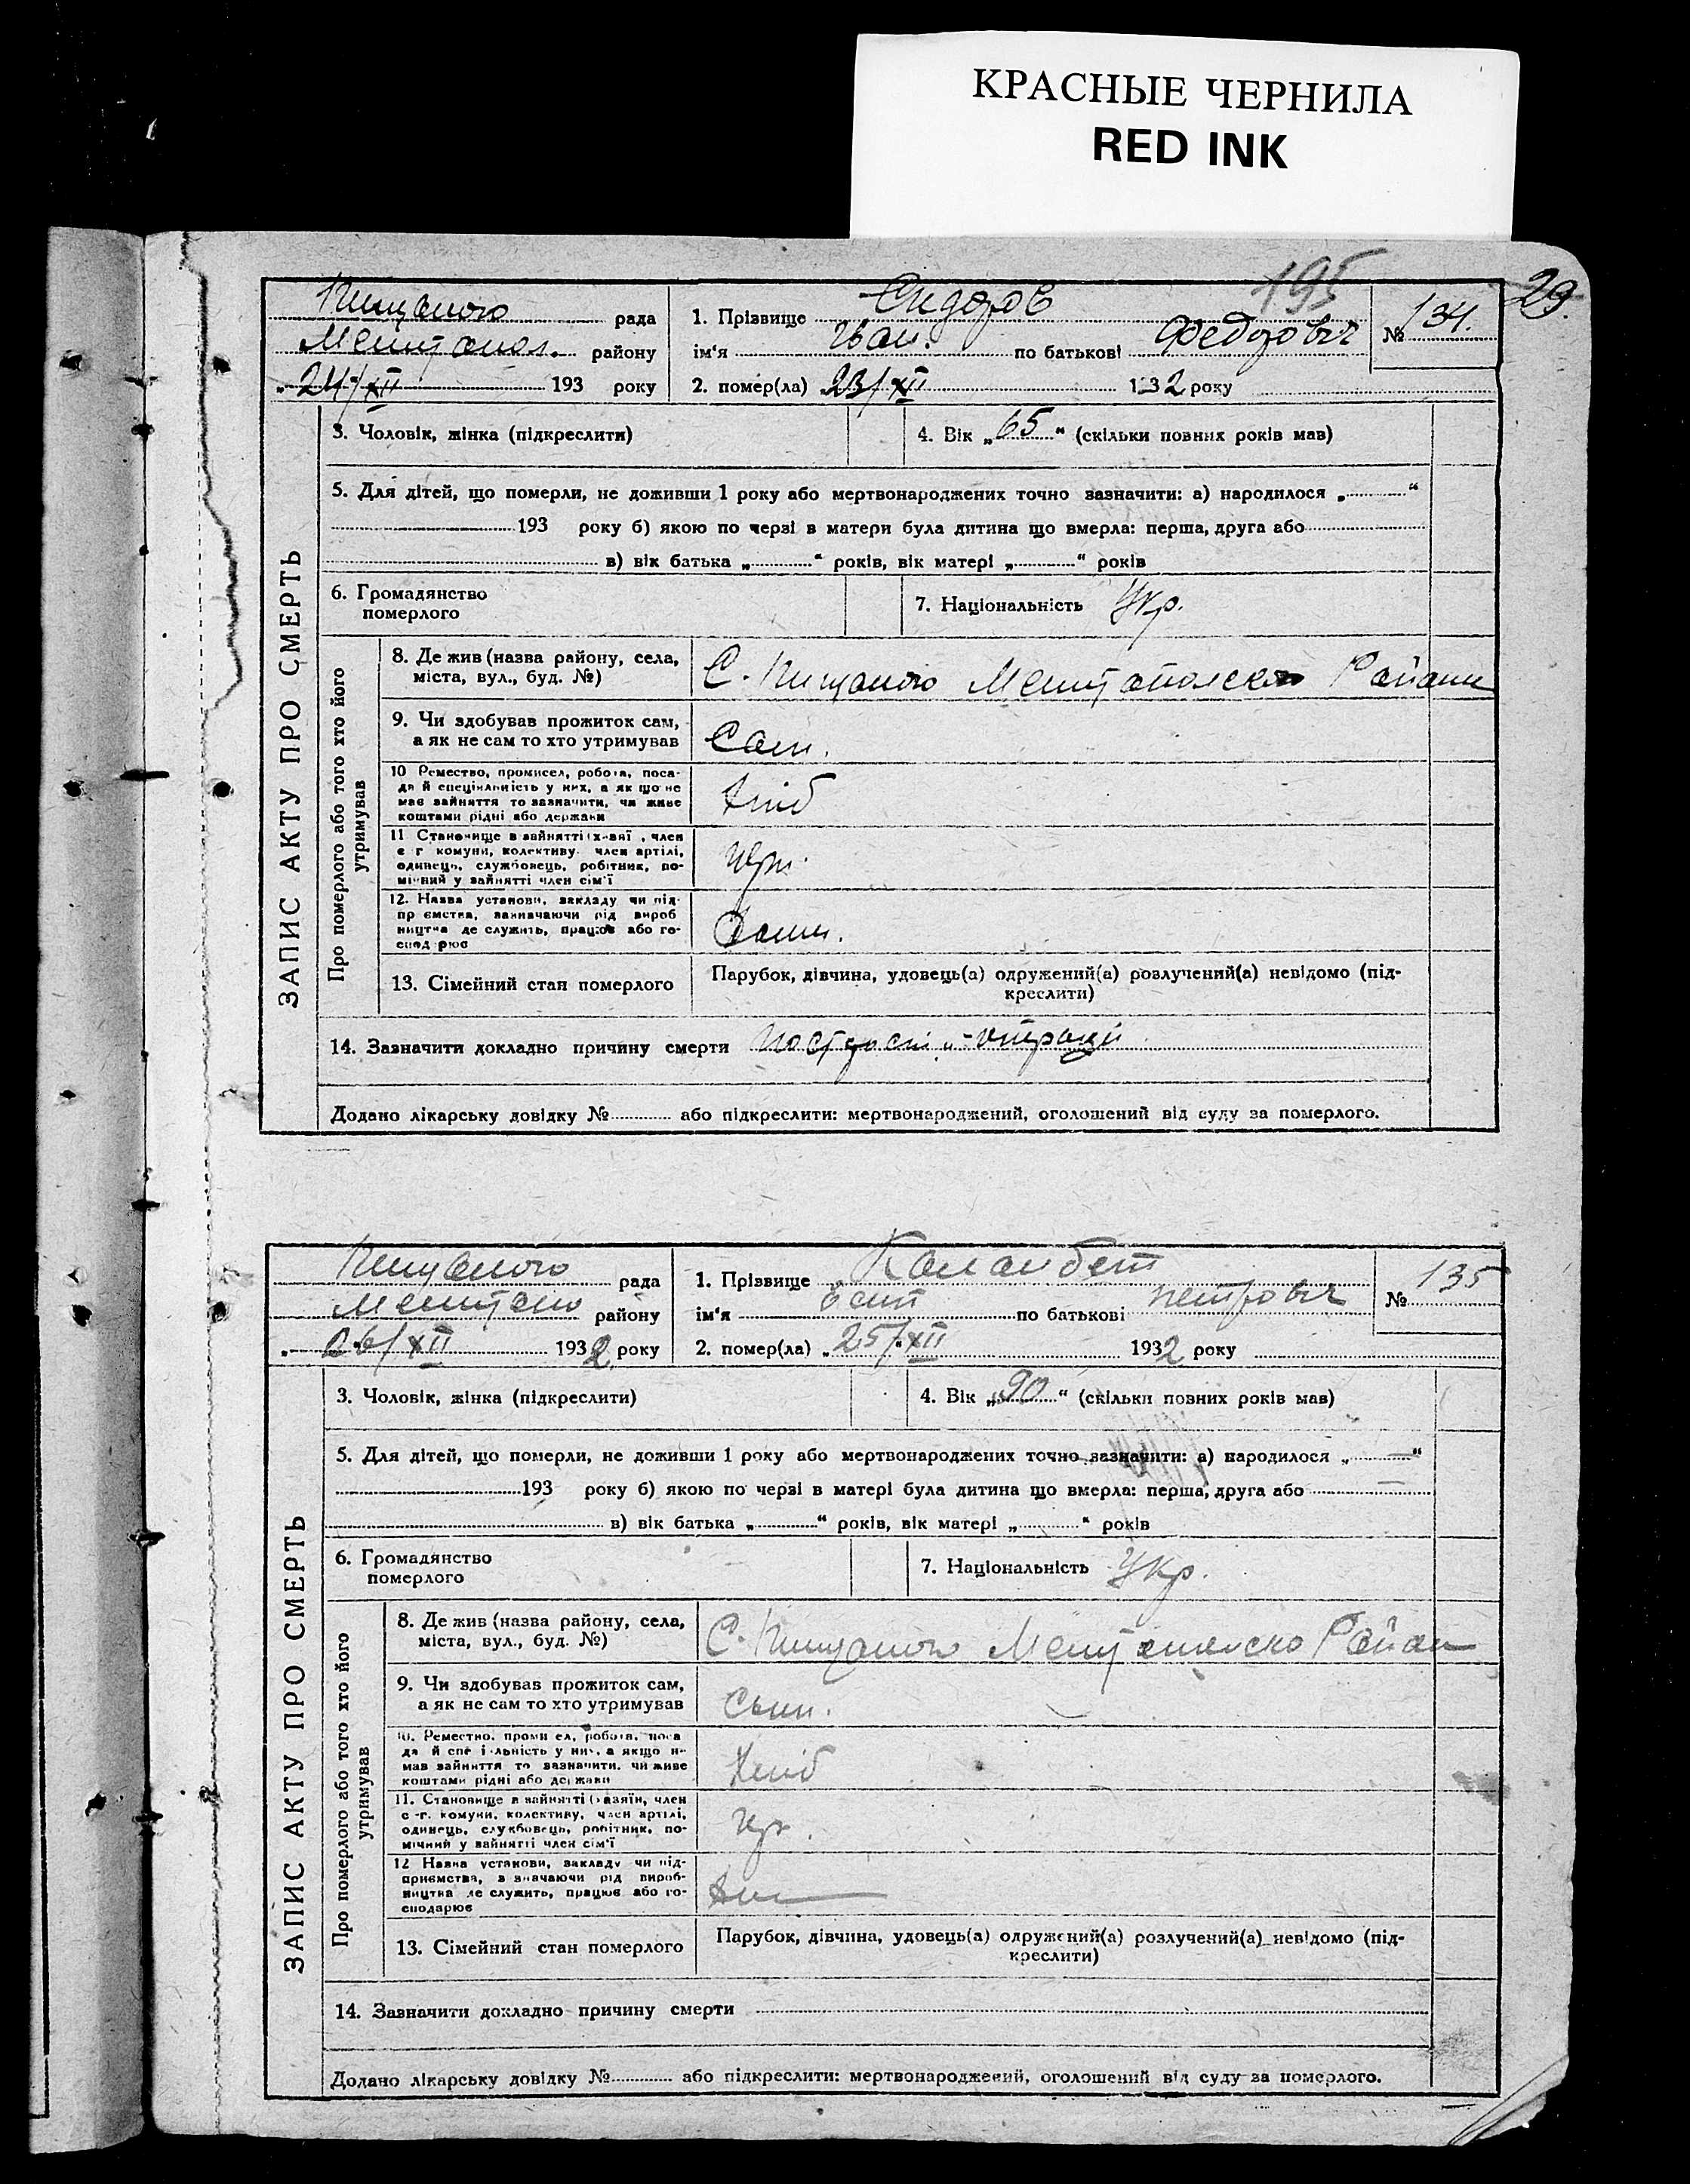 КРАСНЫЕ ЧЕРНИЛА
RED INK
195
29.
рада
1. Прізвище Сидоров
№ 134.
району
ім'я Іван. по батькові Федорович
24/XII 193 року
2. помер(ла) 23/XII 1932 року
ЗАПИС АКТУ ПРО СМЕРТЬ
3. Чоловік, жінка (підкреслити)
4. Вік „65“ (скільки повних років мав)
5. Для дітей, що померли, не доживши 1 року або мертвонароджених точно зазначити: а) народилося „ “
193 року б) якою по черзі в матери була дитина що вмерла: перша, друга або
в) вік батька „ “ років, вік матері „ “ років
6. Громадянство
померлого
7. Національність Укр.
Про померлого або того хто його
утримував
8. Де жив (назва району, села,
міста, вул., буд. №)
С.
9. Чи здобував прожиток сам,
а як не сам то хто утримував
Сам.
10 Ремество, промисел, робота, поса-
да й спеціяльність у них, а як що не
має зайняття то зазначити, чи живе
коштами рідні або держави
11 Становище в зайнятті (х-вяї, член
с г комуни, колективу член артілі,
одинець, службовець, робітник, по-
мічний у зайнятті член сім'ї
12. Назва установи, закладу чи під-
пр ємства, зазначаючи рід вироб
ництва де служить, працює або го-
спод рює
13. Сімейний стан померлого
Парубок, дівчина, удовець(а) одружений(а) розлучений(а) невідомо (під-
креслити)
14. Зазначити докладно причину смерти
Додано лікарську довідку № або підкреслити: мертвонароджений, оголошений від суду за померлого.
рада
1. Прізвище Каланбет
№ 135
району
ім'я по батькові Петрович
26/XII 1932 року
2. помер(ла) „25/XII 1932 року
ЗАПИС АКТУ ПРО СМЕРТЬ
3. Чоловік, жінка (підкреслити)
4. Вік „90“ (скільки повних років мав)
5. Для дітей, що померли, не доживши 1 року або мертвонароджених точно зазначити: а) народилося „ “
193 року б) якою по черзі в матері була дитина що вмерла: перша, друга або
в) вік батька „ “ років, вік матері „ “ років
6. Громадянство
померлого
7. Національність Укр.
Про померлого або того хто його
утримував
8. Де жив (назва району, села,
міста, вул., буд. №)
С.
9. Чи здобував прожиток сам,
а як не сам то хто утримував
10. Ремество, проми ел, робота, поса
да й спе і льність у них, а якщо н-
мав зайняття то зазначити, чи живе
коштами рідні або держави
11. Становище в зайнятті (хазяїн, член
с-г. комуни, колективу, член артілі,
одинець, службовець, робітник, по-
мічний у зайнятті член сім'ї
12 Назва установи, закладу чи під-
приємства, з значаючи рід вироб-
ництва де служить, працює або го-
сподарює
13. Сімейний стан померлого
Парубок, дівчина, удовець(а) одружений(а) розлучений(а) невідомо (під-
креслити)
14. Зазначити докладно причину смерти
Додано лікарську довідку № або підкреслити: мертвонароджений, оголошений від суду за померлого.